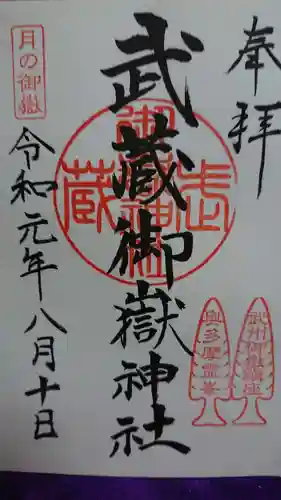 奉拝
武蔵御嶽神社
月の御嶽
令和元年八月十日
武蔵
御嶽神社
武州御嶽講座
奥多摩霊峯